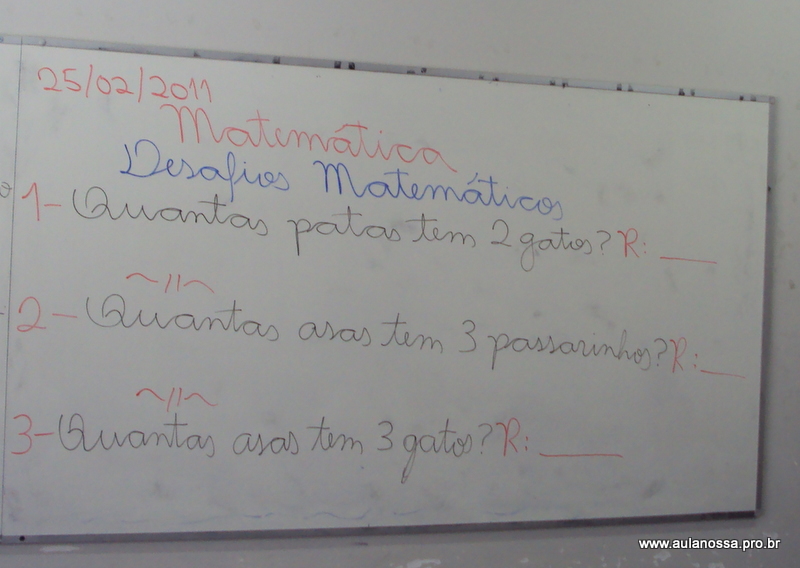 25/02/2011
Matemática
Desafios Matemáticos
1- Quantas patas tem 2 gatos? R: ____
~//~
2- Quantas asas tem 3 passarinhos? R: ____
~//~
3- Quantas asas tem 3 gatos? R: ____
www.aulanossa.pro.br